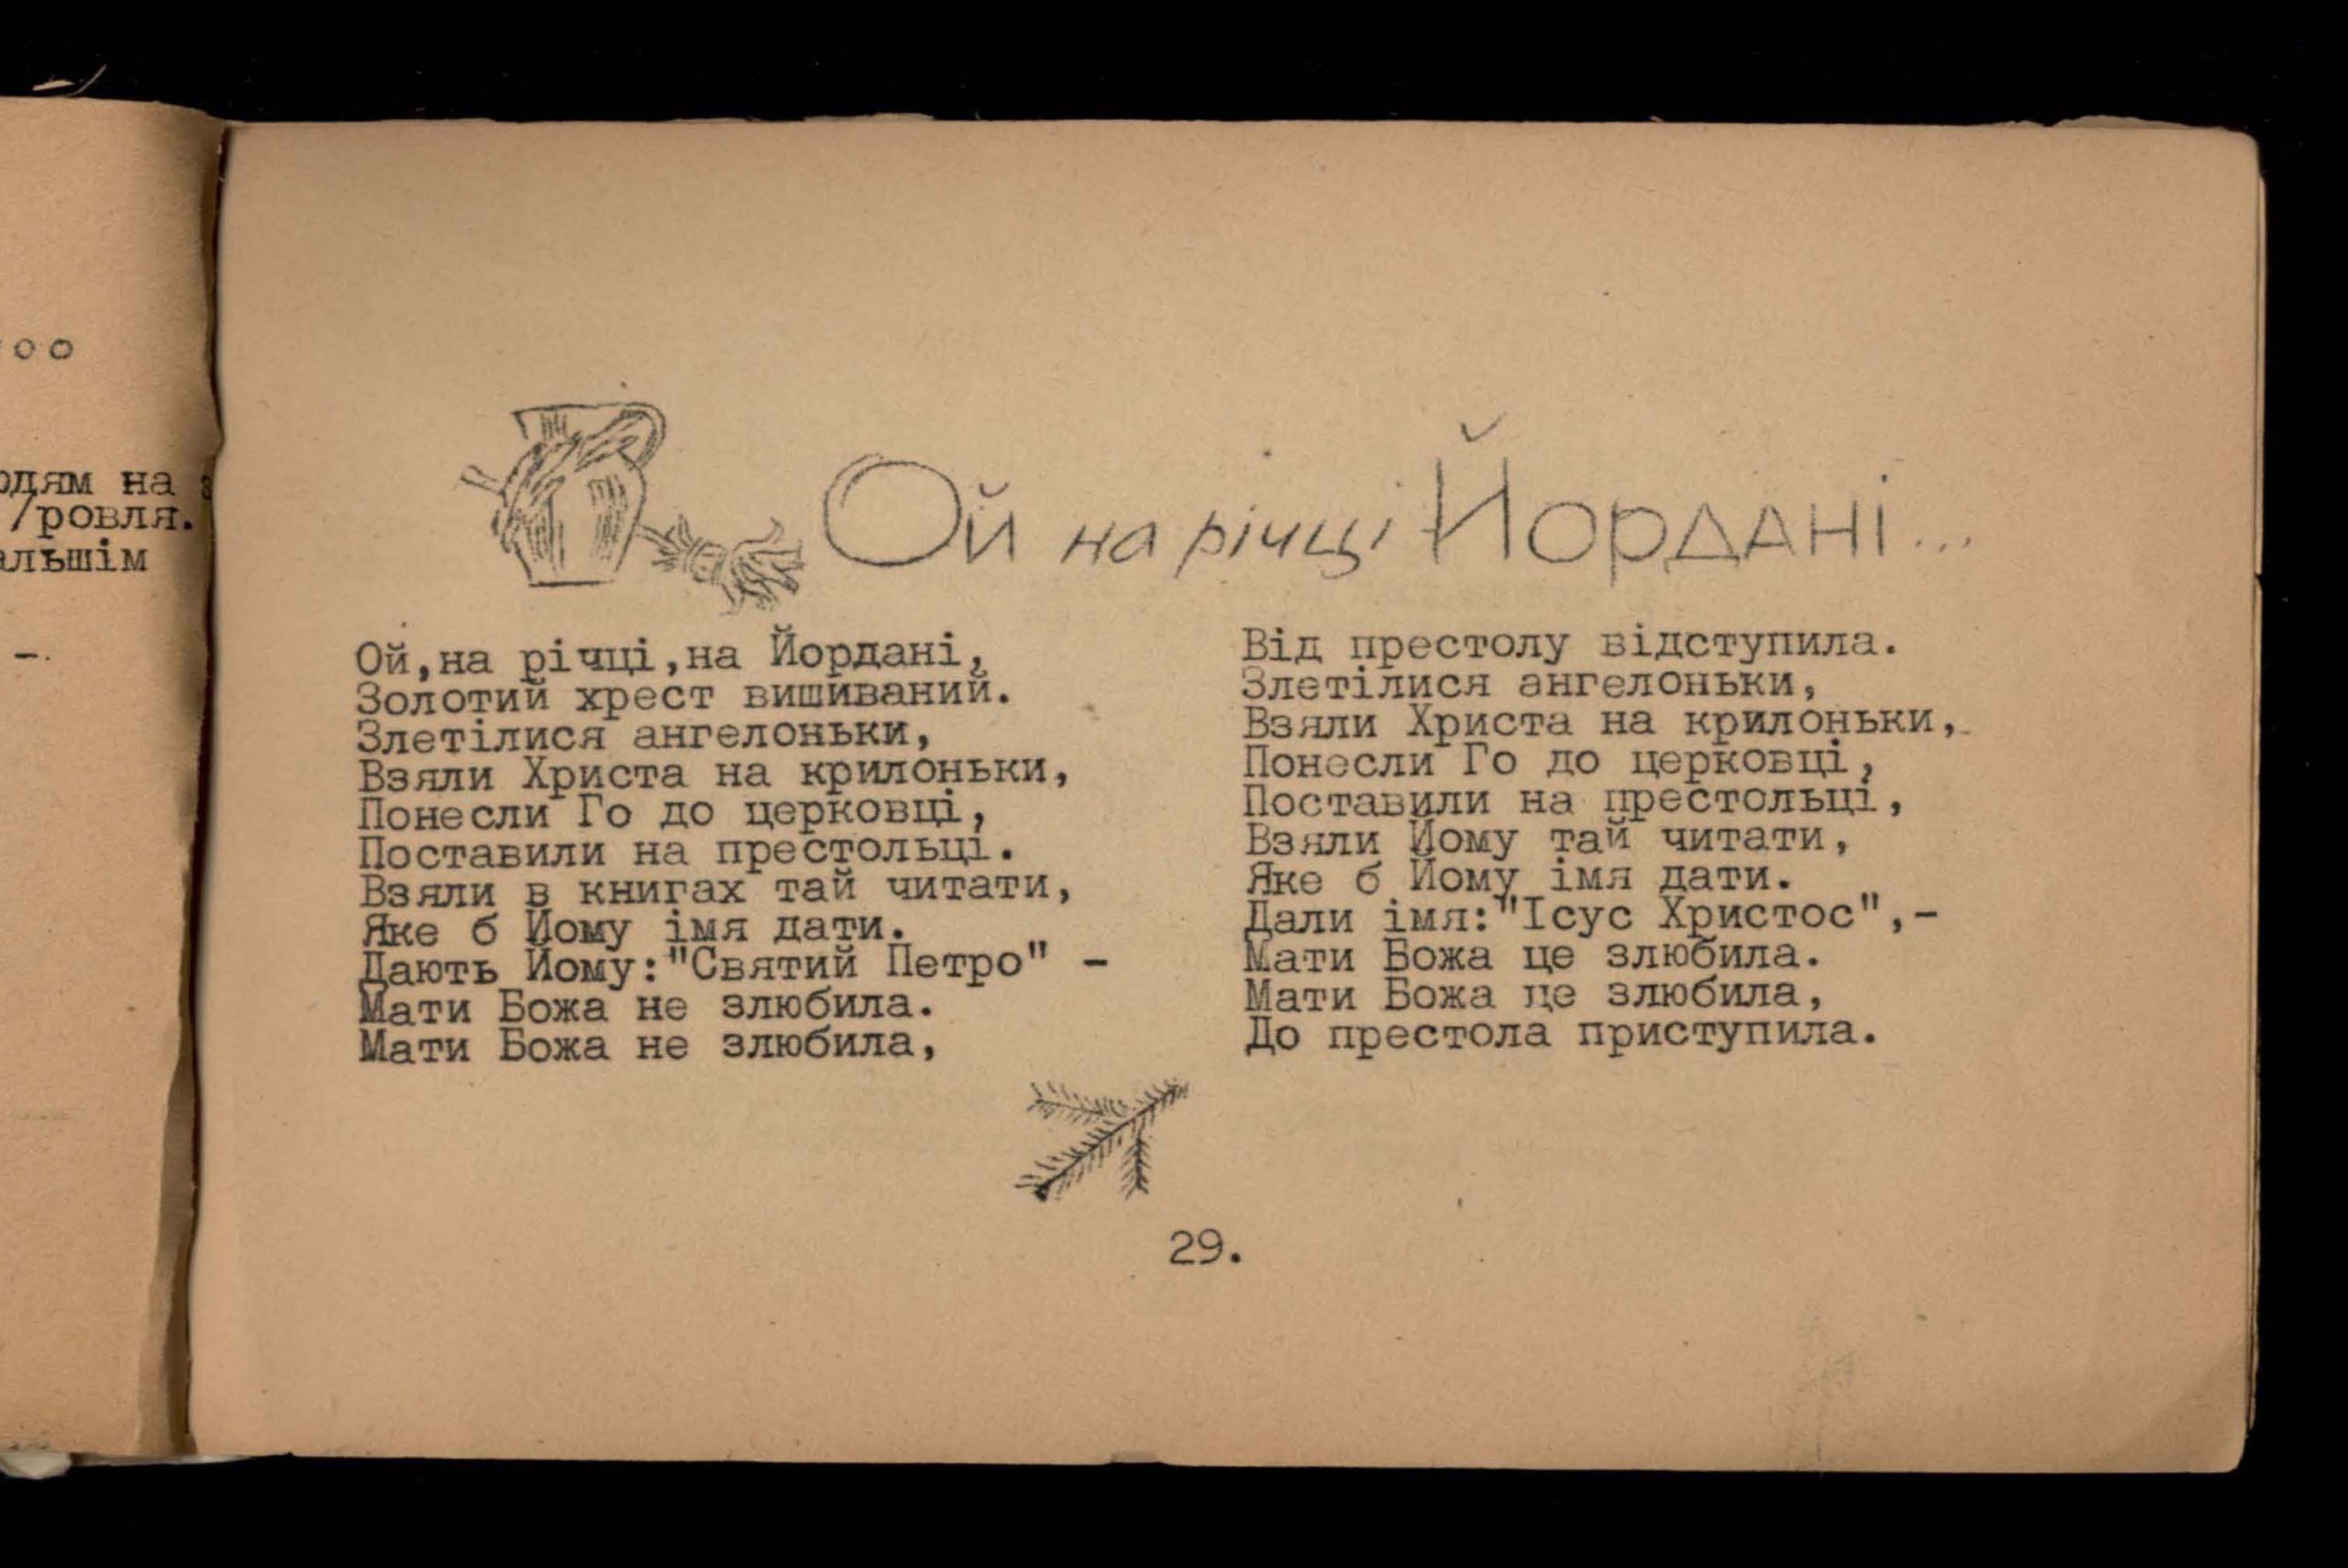 оо
на
/ровля.
Ой на річці Йордані...
Ой,на річці,на Йордані,
Золотий хрест вишиваний.
Злетілися ангелоньки,
Взяли Христа на крилоньки,
Понесли Го до церковці,
Поставили на престольці.
Взяли в книгах тай читати,
Яке б Йому імя дати.
Дають Йому:"Святий Петро" -
Мати Божа не злюбила.
Мати Божа не злюбила,
Від престолу відступила.
Злетілися ангелоньки,
Взяли Христа на крилоньки,
Понесли Го до церковці,
Поставили на престольці,
Взяли Йому тай читати,
Яке б Йому імя дати.
Дали імя:"Ісус Христос",-
Мати Божа це злюбила.
Мати Божа це злюбила,
До престола приступила.
29.